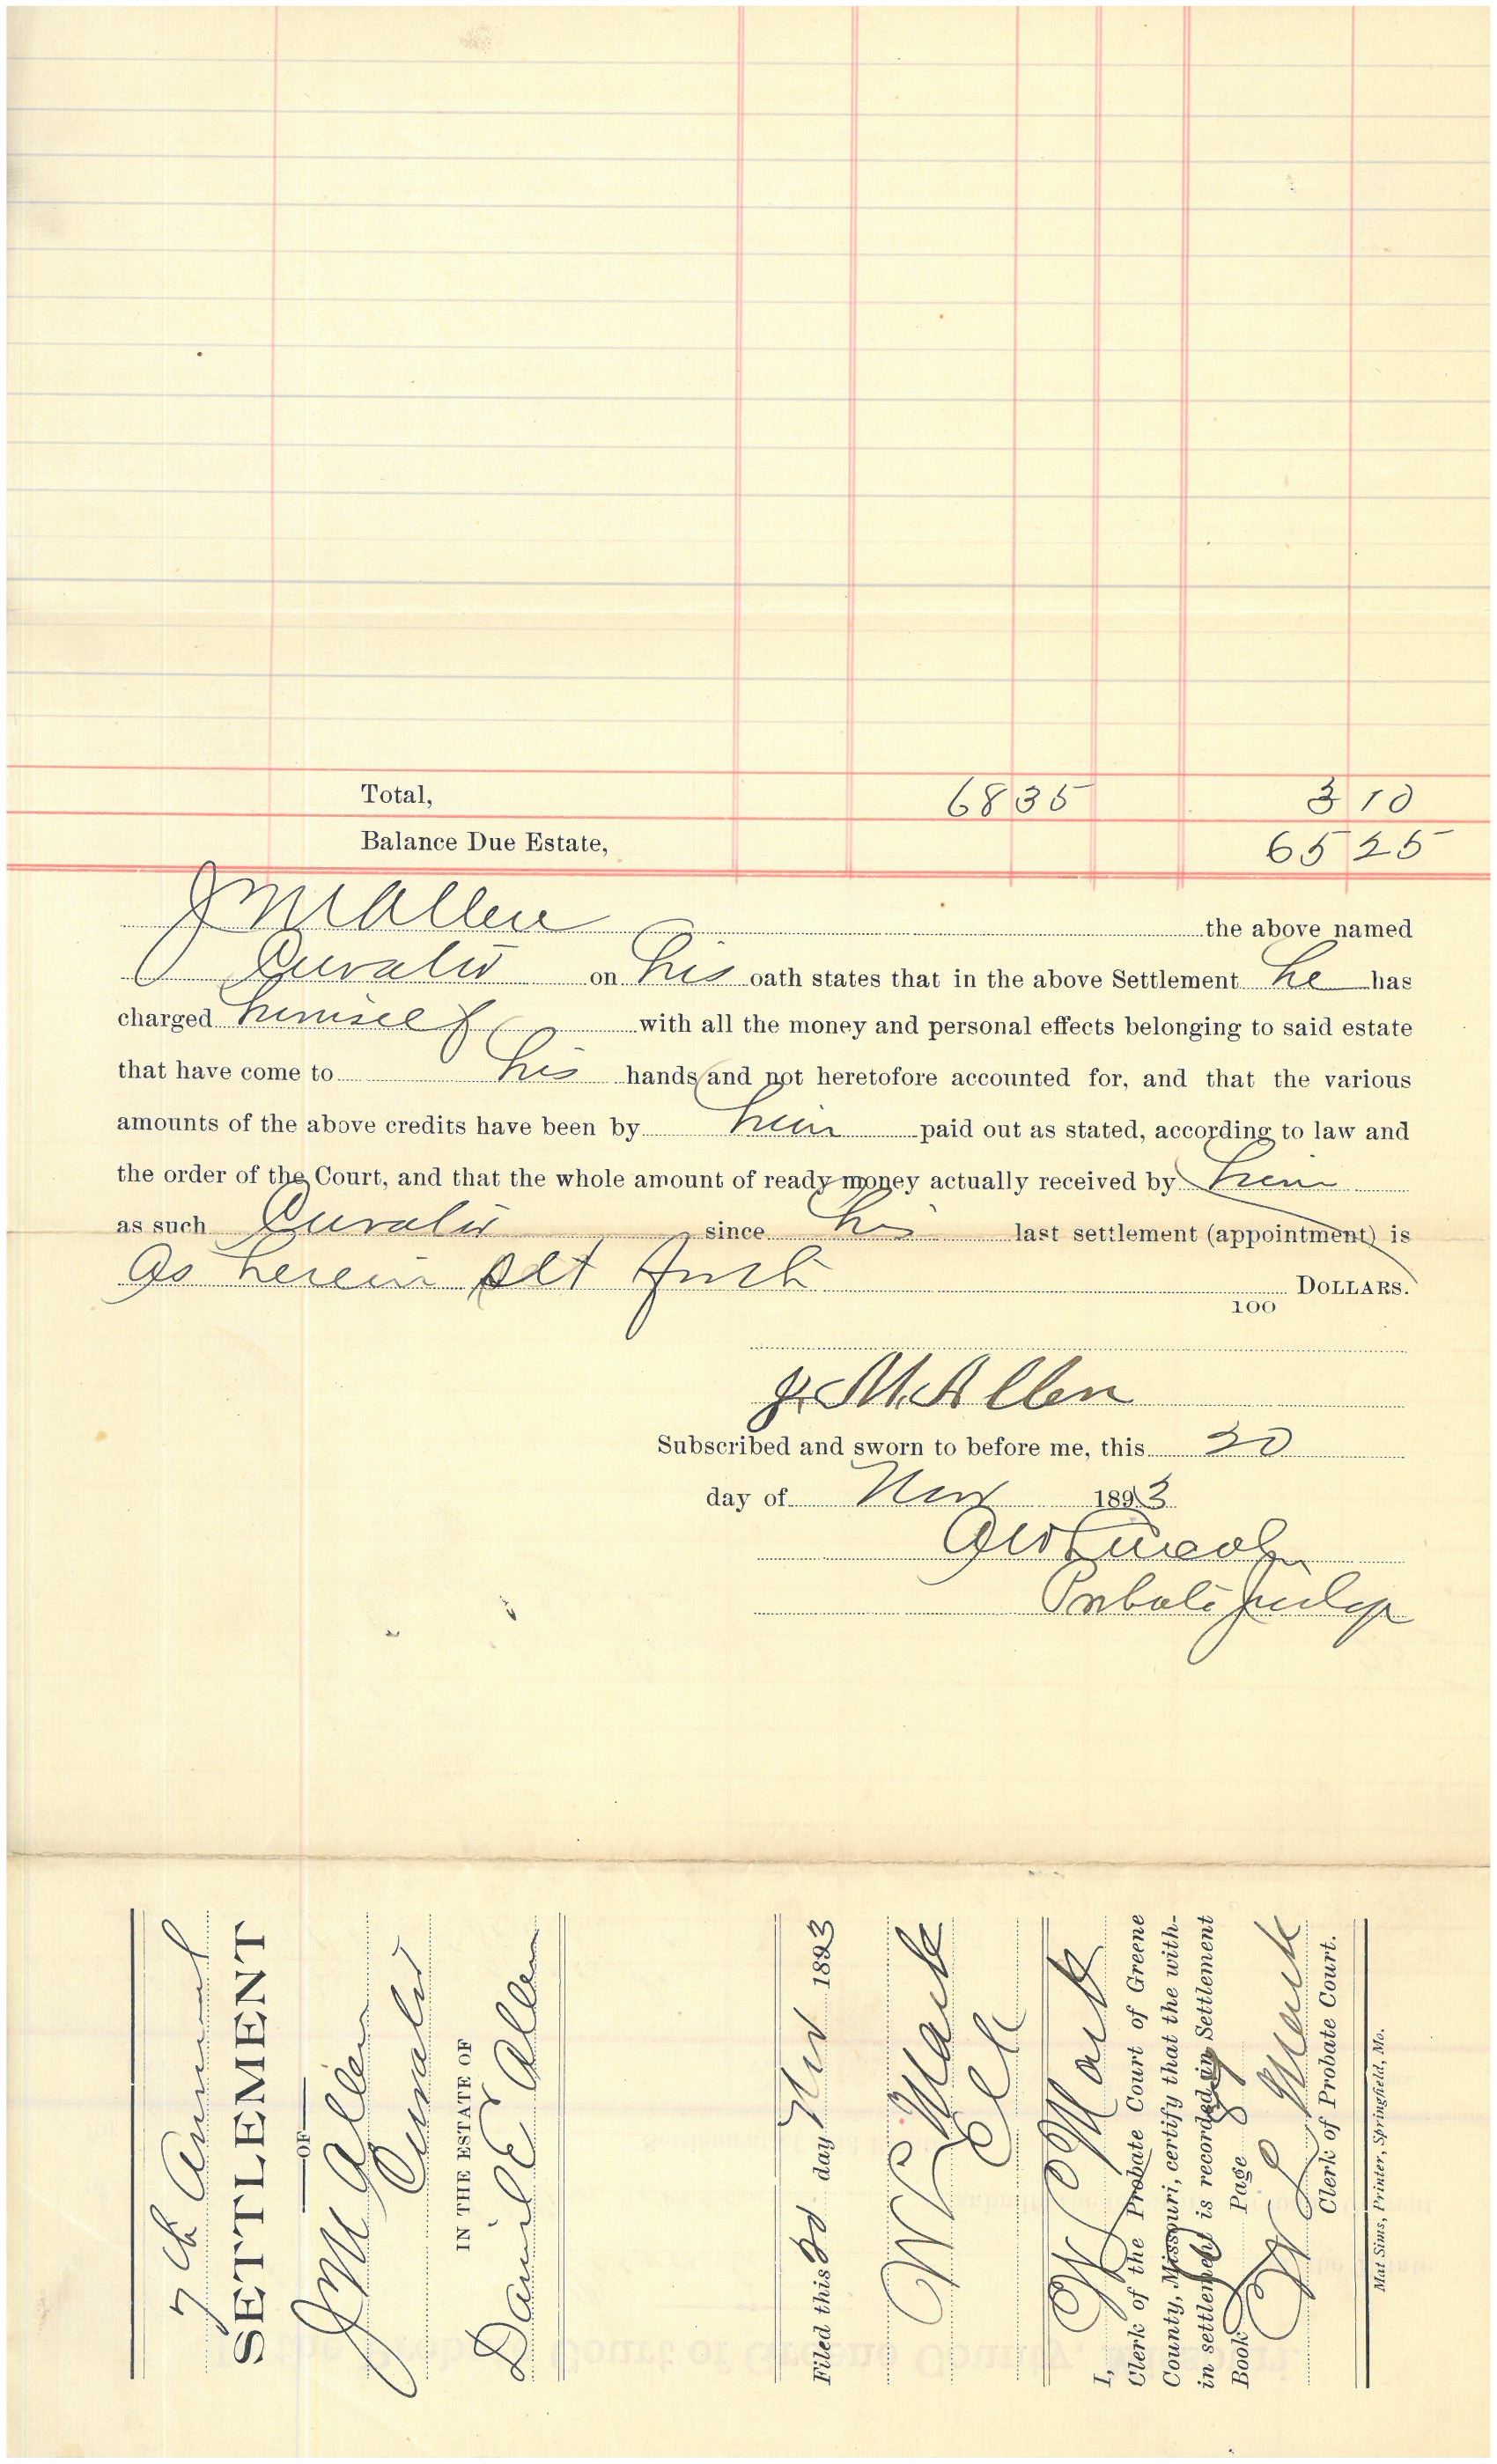 Total, 68 35 3 10
Balance Due Estate, 65 25
J M Allen the above named
Curator on his oath states that in the above Settlement he has
charged himself with all the money and personal effects belonging to said estate
that have come to his hands and not heretofore accounted for, and that the various
amounts of the above credits have been by him paid out as stated, according to law and
the order of the Court, and that the whole amount of ready money actually received by him
as such Curator since his last settlement (appointment) is
As herein set forth
100 DOLLARS.
J. M. Allen
Subscribed and sworn to before me, this 20
day of Nov 1893
G W Lincoln
Probate Judge
7th Annual
SETTLEMENT
OF
J M Allen
Curator
IN THE ESTATE OF
Daniel E Allen
Filed this 20 day Nov 1893
W L Mack
Clk
I, W L Mack
Clerk of the Probate Court of Greene
County, Missouri, certify that the with-
in settlement is recorded in Settlement
Book Page
W L Mack
Clerk of Probate Court.
Mat Sims, Printer, Springfield, Mo.